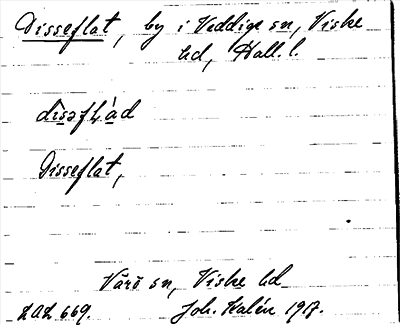 Disseflat, by i Veddige sn, Viske
hd, Hall. l.
dìsəfɫàd
Disseflat,
Värö sn, Viske hd
LAL 669. Joh. Kalén 1917.